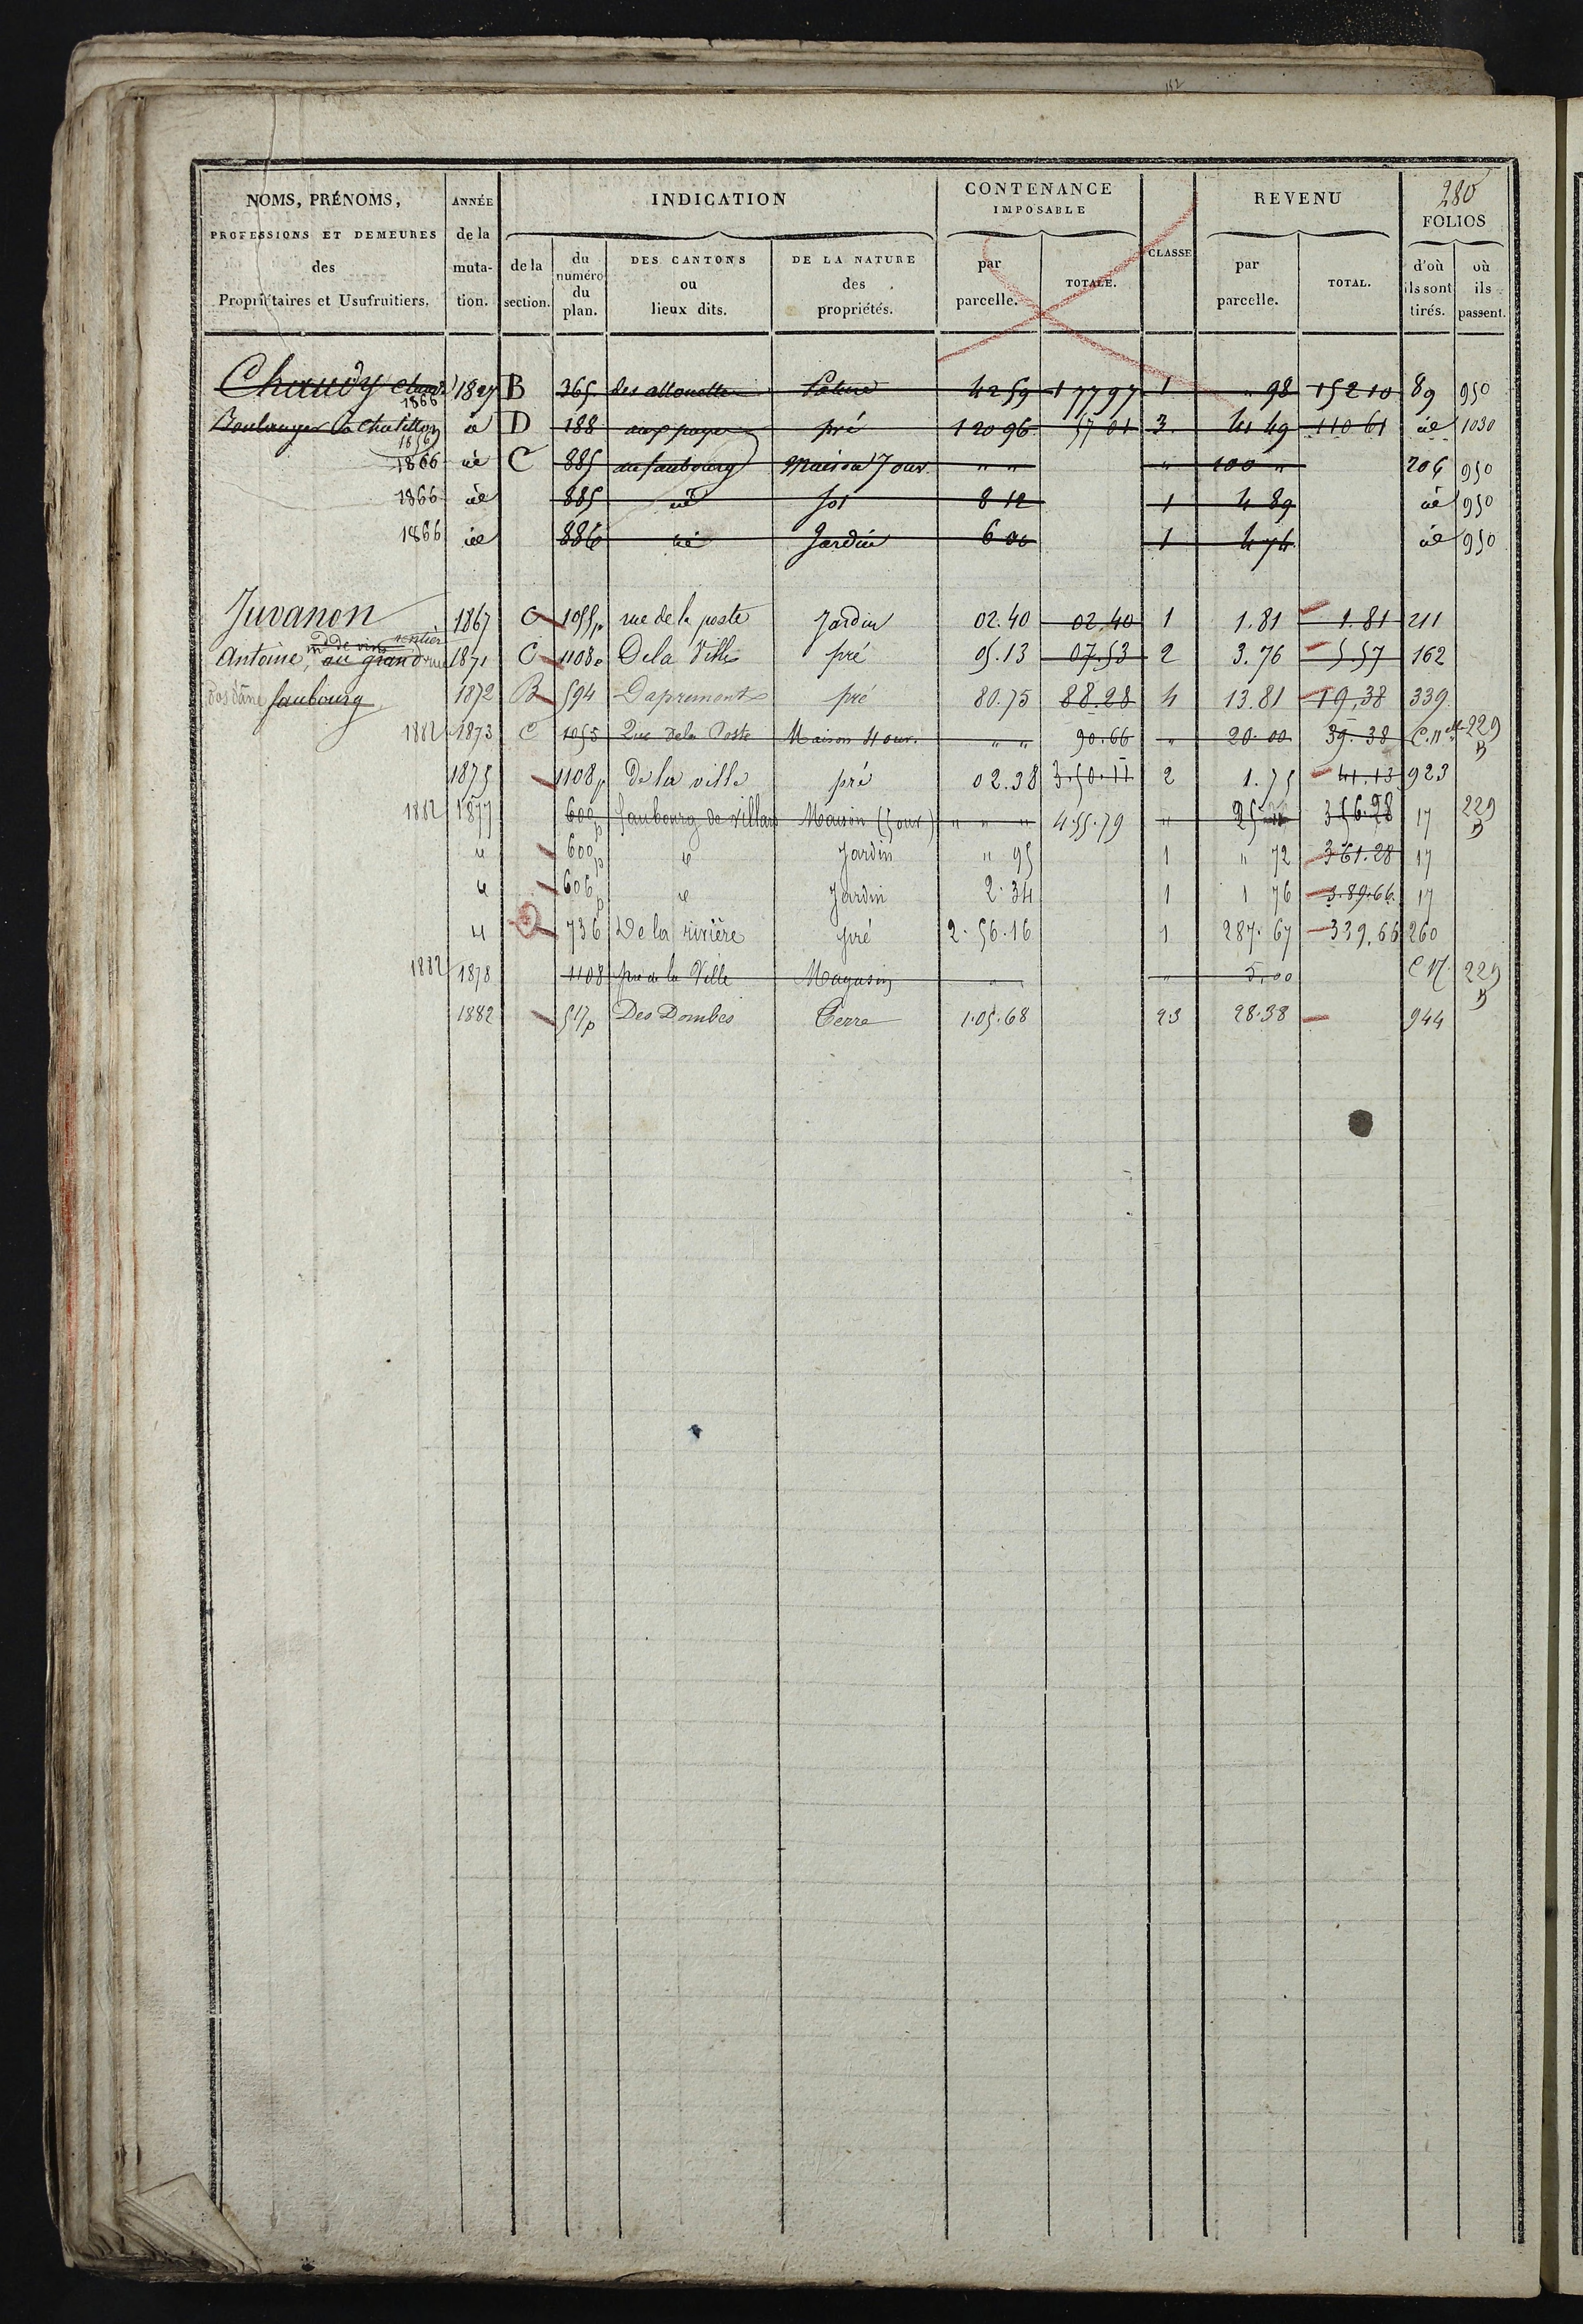 152
280
NOMS, PRÉNOMS, PROFESSIONS ET DEMEURES des Propriétaires et Usufruitiers.
ANNÉE de la muta- tion.
INDICATION
de la section.
du numéro du plan.
DES CANTONS ou lieux dits.
DE LA NATURE des propriétés.
CONTENANCE IMPOSABLE
par parcelle.
TOTALE.
CLASSE
REVENU
par parcelle.
TOTAL.
FOLIOS
d'où ils sont tirés.
où ils passent.
Chaudy 1866 1827 B 365 des allouettes Pature 42 59 177 97 1 " 98 152 10 89 950
Boulanger à Chatillon 1856 id D 188 pré 1 20 96 57 01 3 41 49 110 61 id 1030
1866 id C 885 au faubourg Maison 7 ouv. " " " 100 " 206 950
1866 id 885 id sol 8 12 1 4 89 id 950
1866 id 886 id Jardin 6 00 1 4 74 id 950
Juvanon 1867 C 1055p rue de la poste Jardin 02.40 02.40 1 1.81 1.81 211
rentier
md de vins
Antoine, au grand rue 1871 C 1108p De la Ville pré 05.13 07.53 2 3.76 5.57 162
faubourg 1872 B 594 Dapremont pré 80.75 88.28 4 13.81 19.38 339
1882 1873 C 1055 Rue de la Poste Maison 4 ouv. " " 90.66 " 20.00 39.38 C.n 229 B
1875 1108p de la ville pré 02.38 3.50.11 2 1.75 41.13 923
1882 1877 600p faubourg de villars Maison (5 ouv.) " " " 4.55.79 " 25 356.28 17 229 B
" 600p id Jardin " 95 1 " 72 361.28 17
" 606p id Jardin 2.34 1 1 76 389.66 17
" D 736 De la rivière pré 2.56.16 1 287.67 339.66 260
1882 1878 1108 pré de la Ville Magasin " " 5.00 C N. 229 B
1882 517p Des Dombes Terre 1.05.68 23 28.38 944